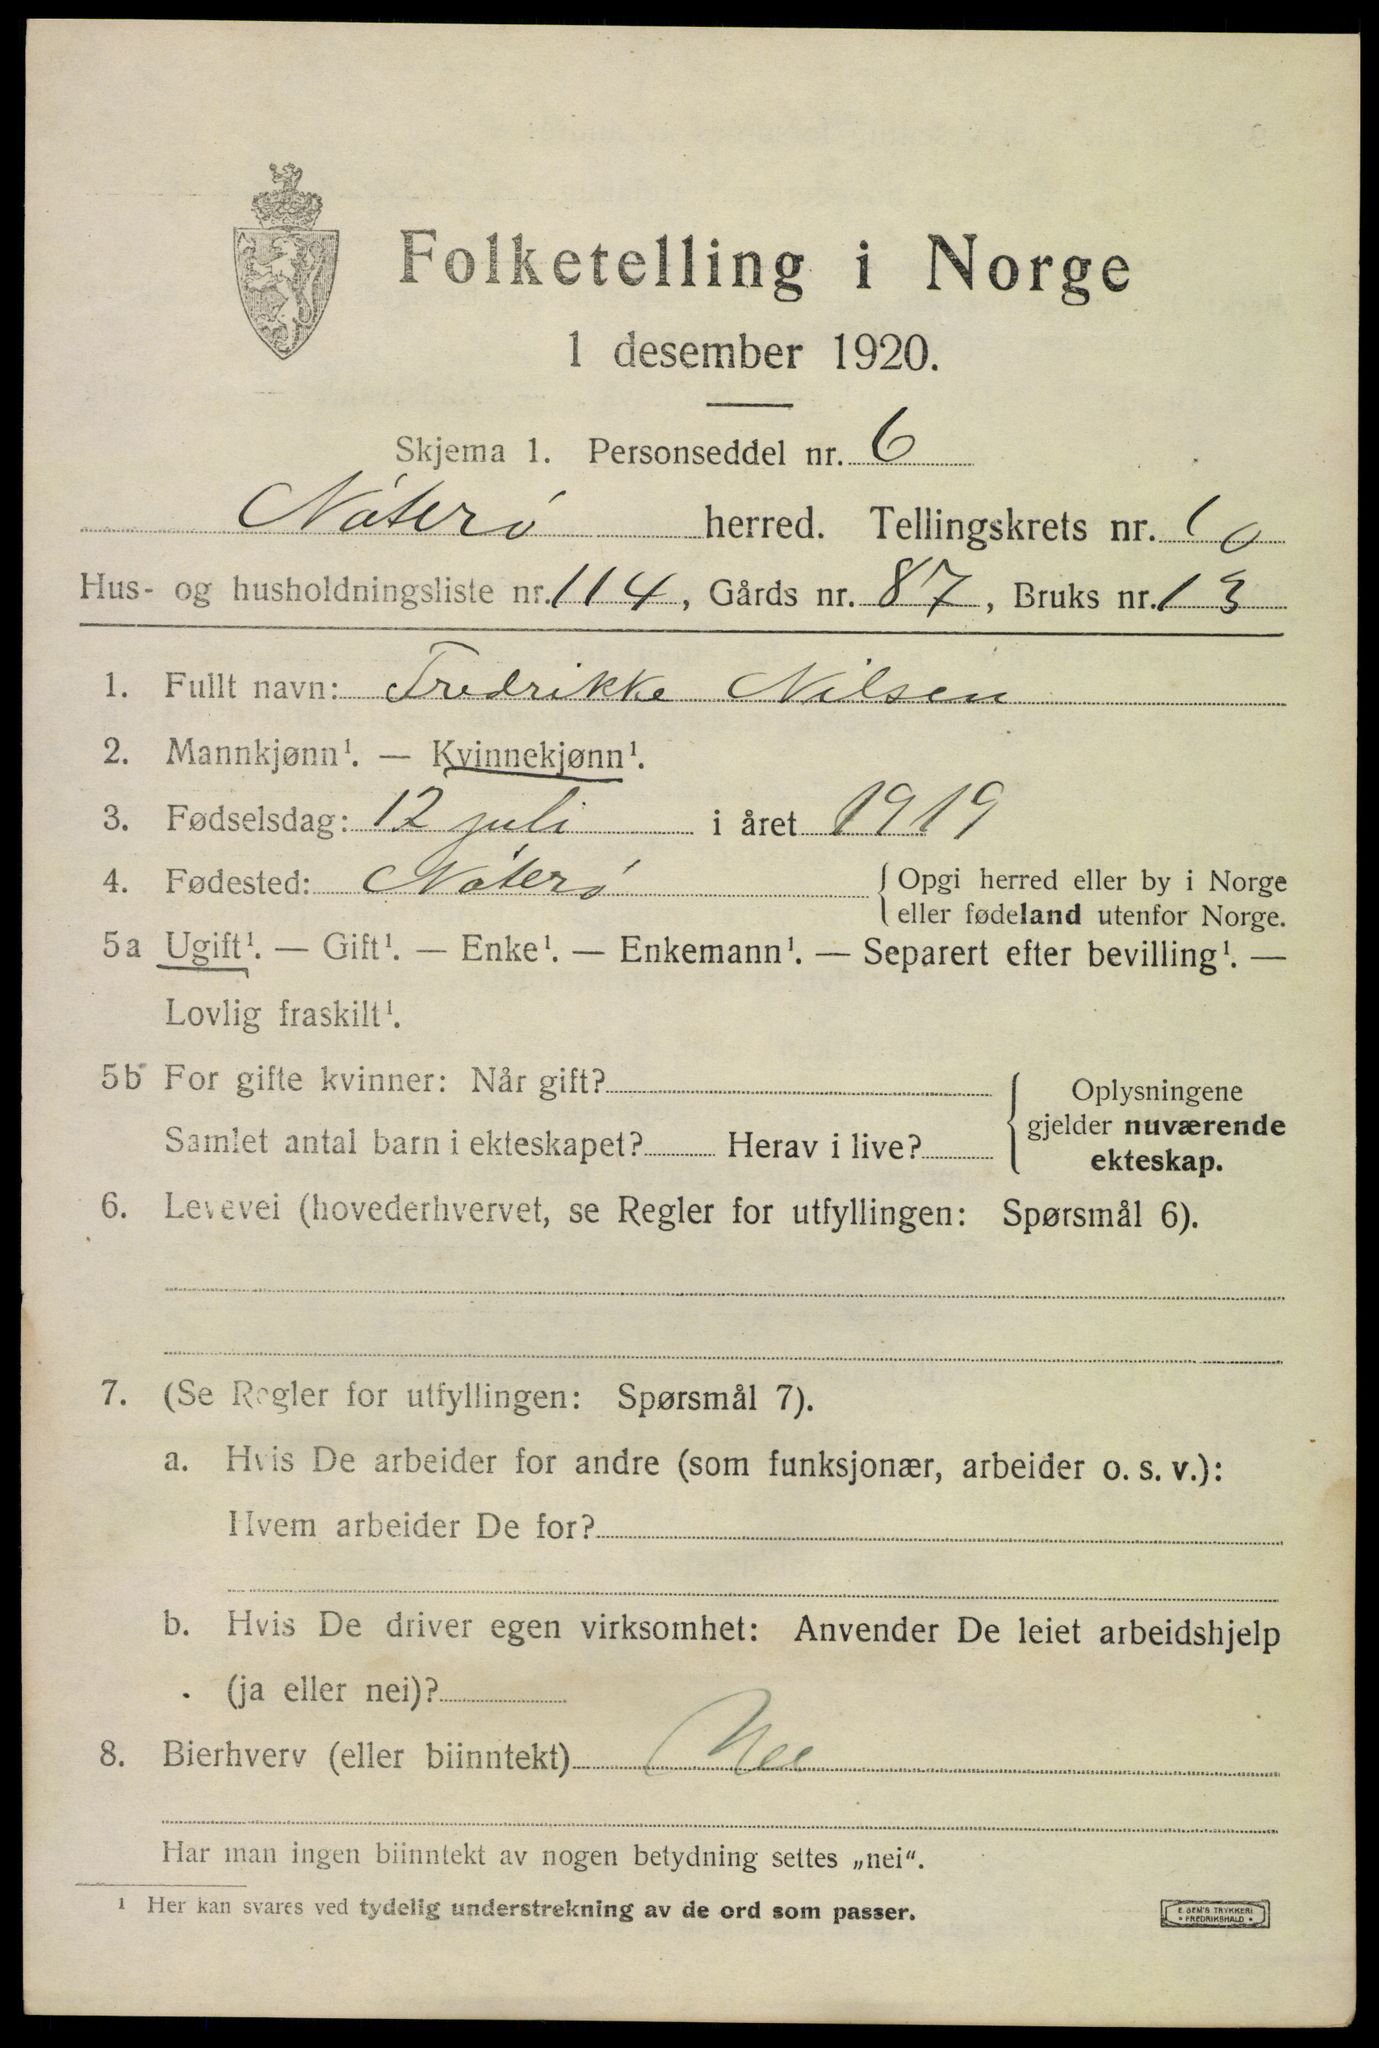 Folketelling i Norge
1 desember 1920.
Skjema 1. Personseddel nr. 6
Nøterø herred. Tellingskrets nr. 10
Hus- og husholdningsliste nr. 114, Gårds nr. 87, Bruks nr. 13
1. Fullt navn: Fredrikke Nilsen
2. Mannkjønn¹. — Kvinnekjønn¹.
3. Fødselsdag: 12 juli i året 1919
4. Fødested: Nøterø { Opgi herred eller by i Norge
eller fødeland utenfor Norge.
5a Ugift¹. — Gift¹. — Enke¹. — Enkemann¹. — Separert efter bevilling¹. —
Lovlig fraskilt¹.
5b For gifte kvinner: Når gift?
Samlet antal barn i ekteskapet? Herav i live?
Oplysningene
gjelder nuværende
ekteskap.
6. Levevei (hovederhvervet, se Regler for utfyllingen: Spørsmål 6).
7. (Se Regler for utfyllingen: Spørsmål 7).
a. Hvis De arbeider for andre (som funksjonær, arbeider o. s. v.):
Hvem arbeider De for?
b. Hvis De driver egen virksomhet: Anvender De leiet arbeidshjelp
(ja eller nei)?
8. Bierhverv (eller biinntekt) Nei
Har man ingen biinntekt av nogen betydning settes „nei“.
¹ Her kan svares ved tydelig understrekning av de ord som passer.
E. SEM'S TRYKKERI
• FREDRIKSHALD •